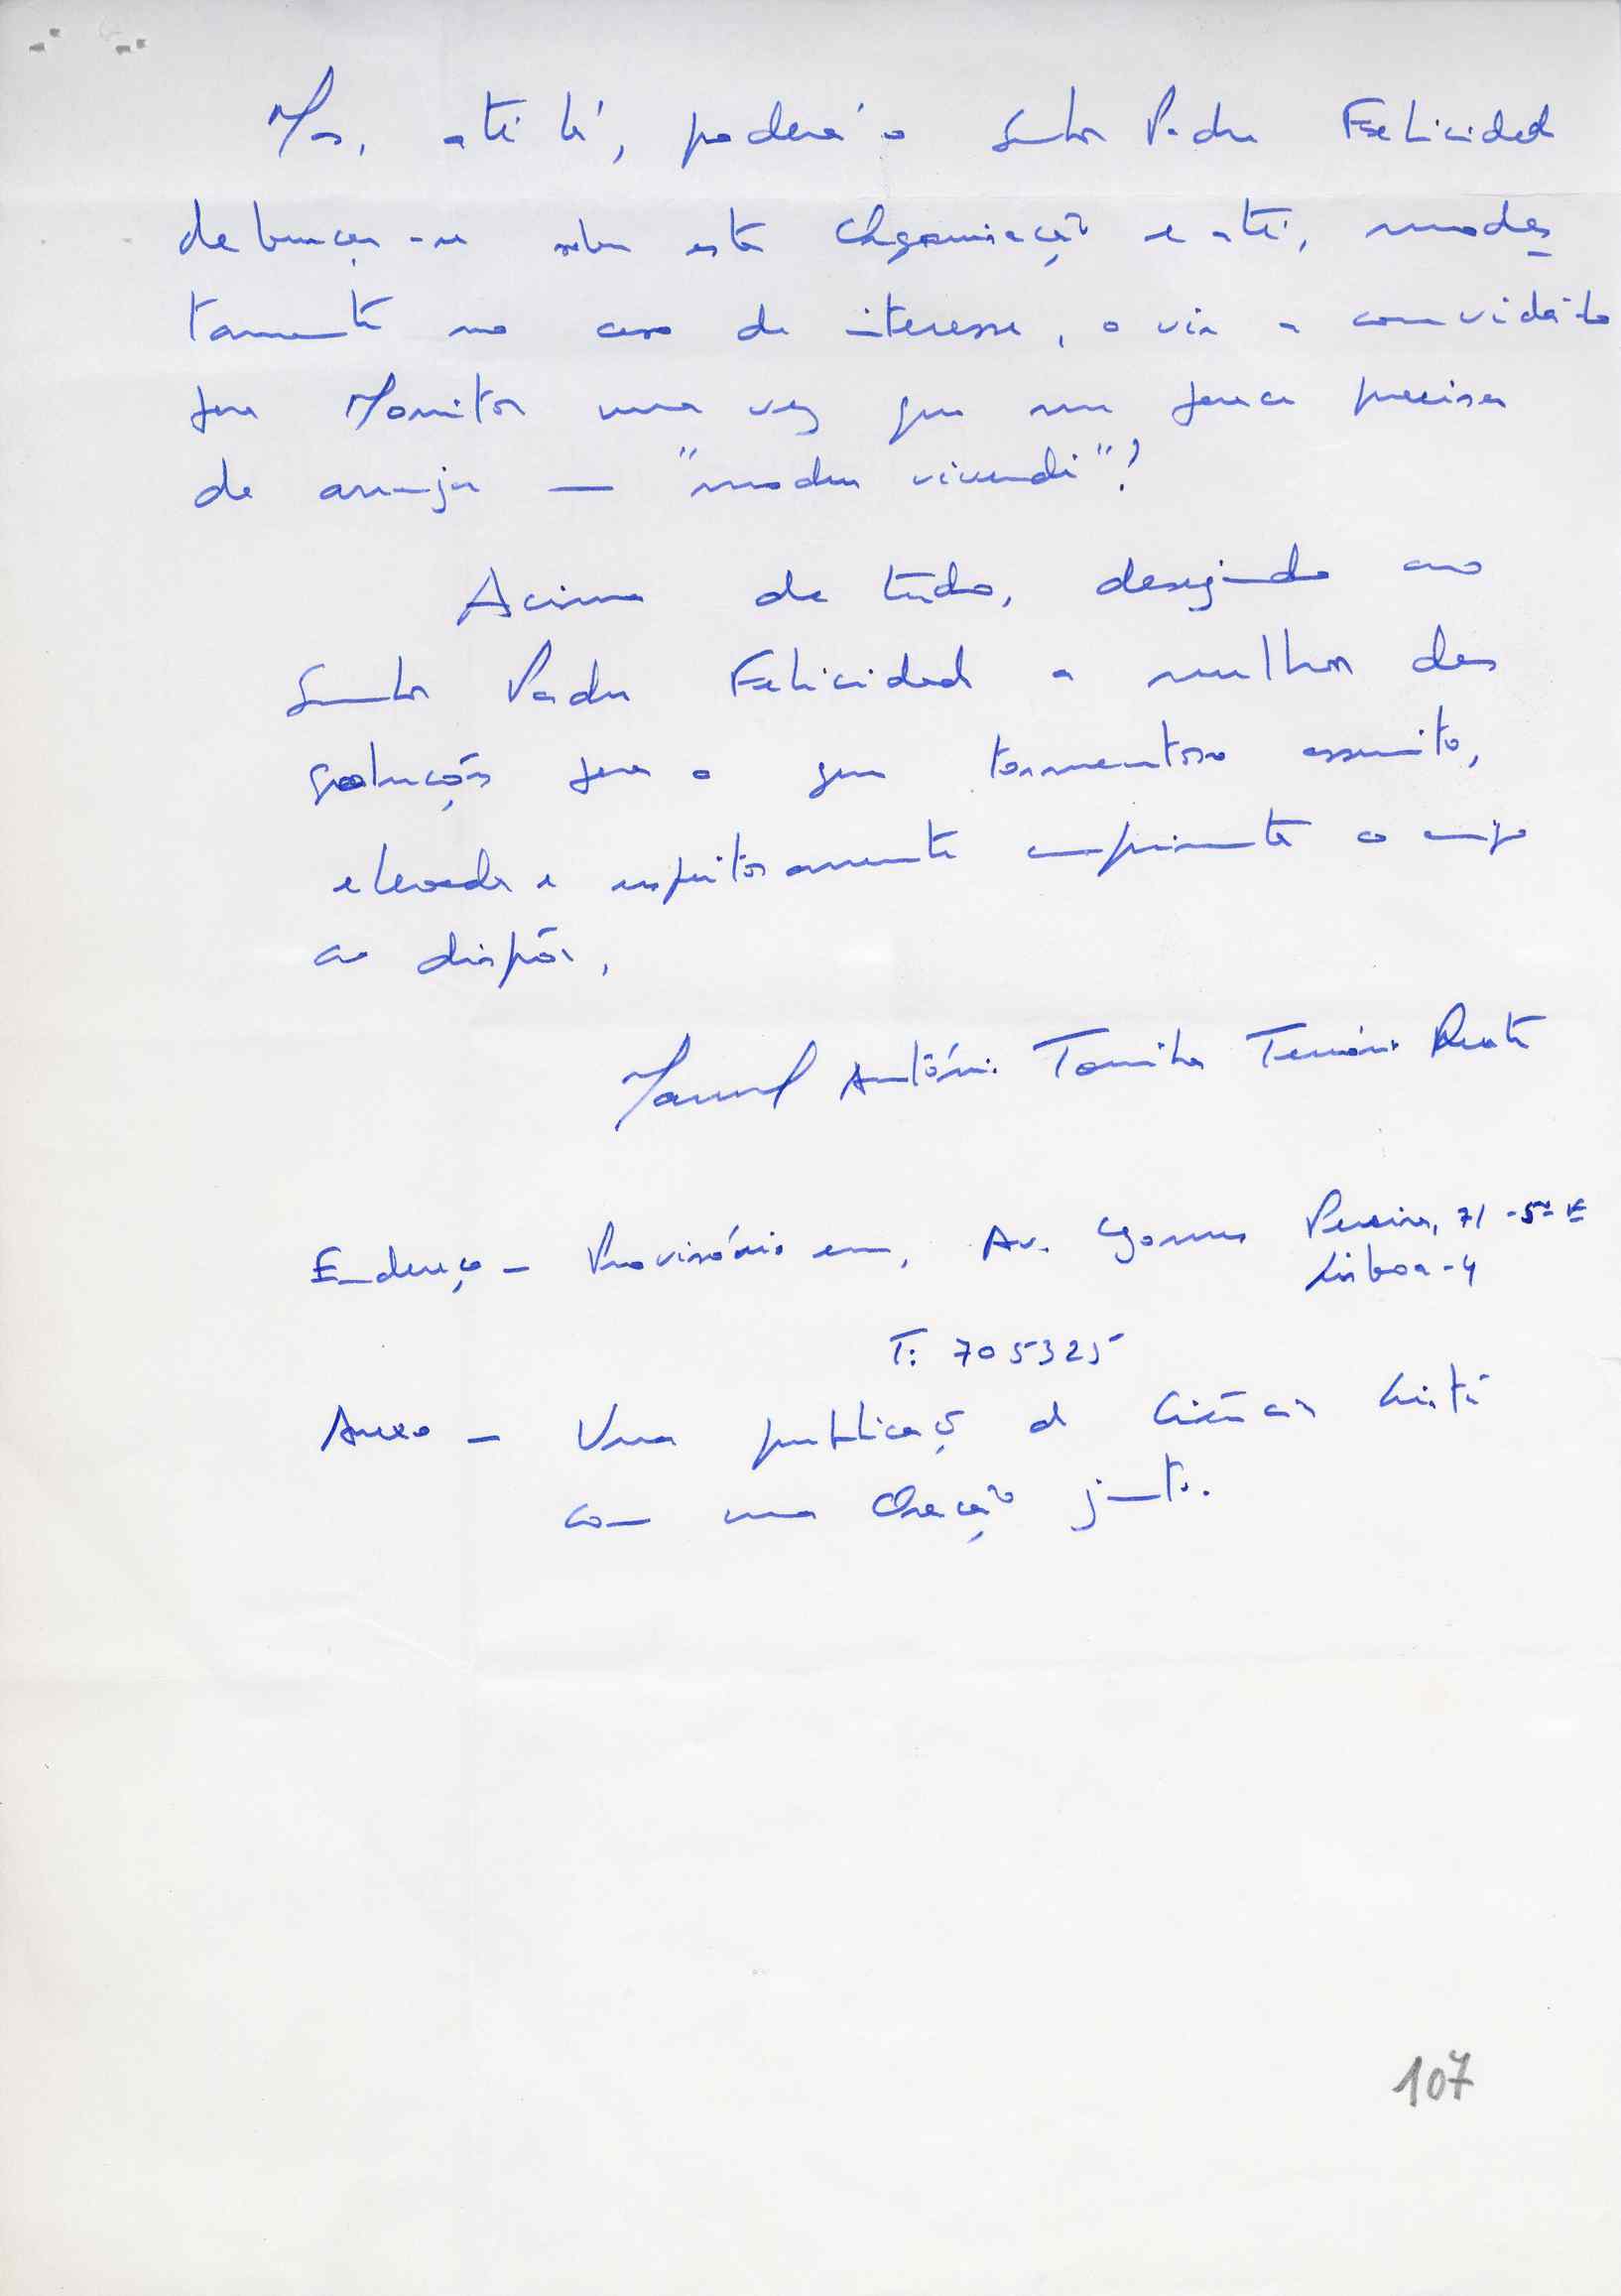 Mas, até lá, poderá o Senhor Padre Felicidade
debruçar-se sobre esta Organização e até, modes
tamente no caso de interesse, o vir a convidá-lo
para Monitor uma vez que me parece precisar
de arranjar — "modus vivendi"?
Acima de tudo, desejando ao
Senhor Padre Felicidade a melhor das
soluções para o seu tormentoso assunto,
elevada e respeitosamente cumprimenta o amigo
ao dispôr,
Manuel António
Endereço - Provisório em, Av. Gomes Pereira, 71 - 5º E
Lisboa - 4
T: 705325
Anexo - Uma publicação de Ciência Cristã
com uma Oração junto.
107